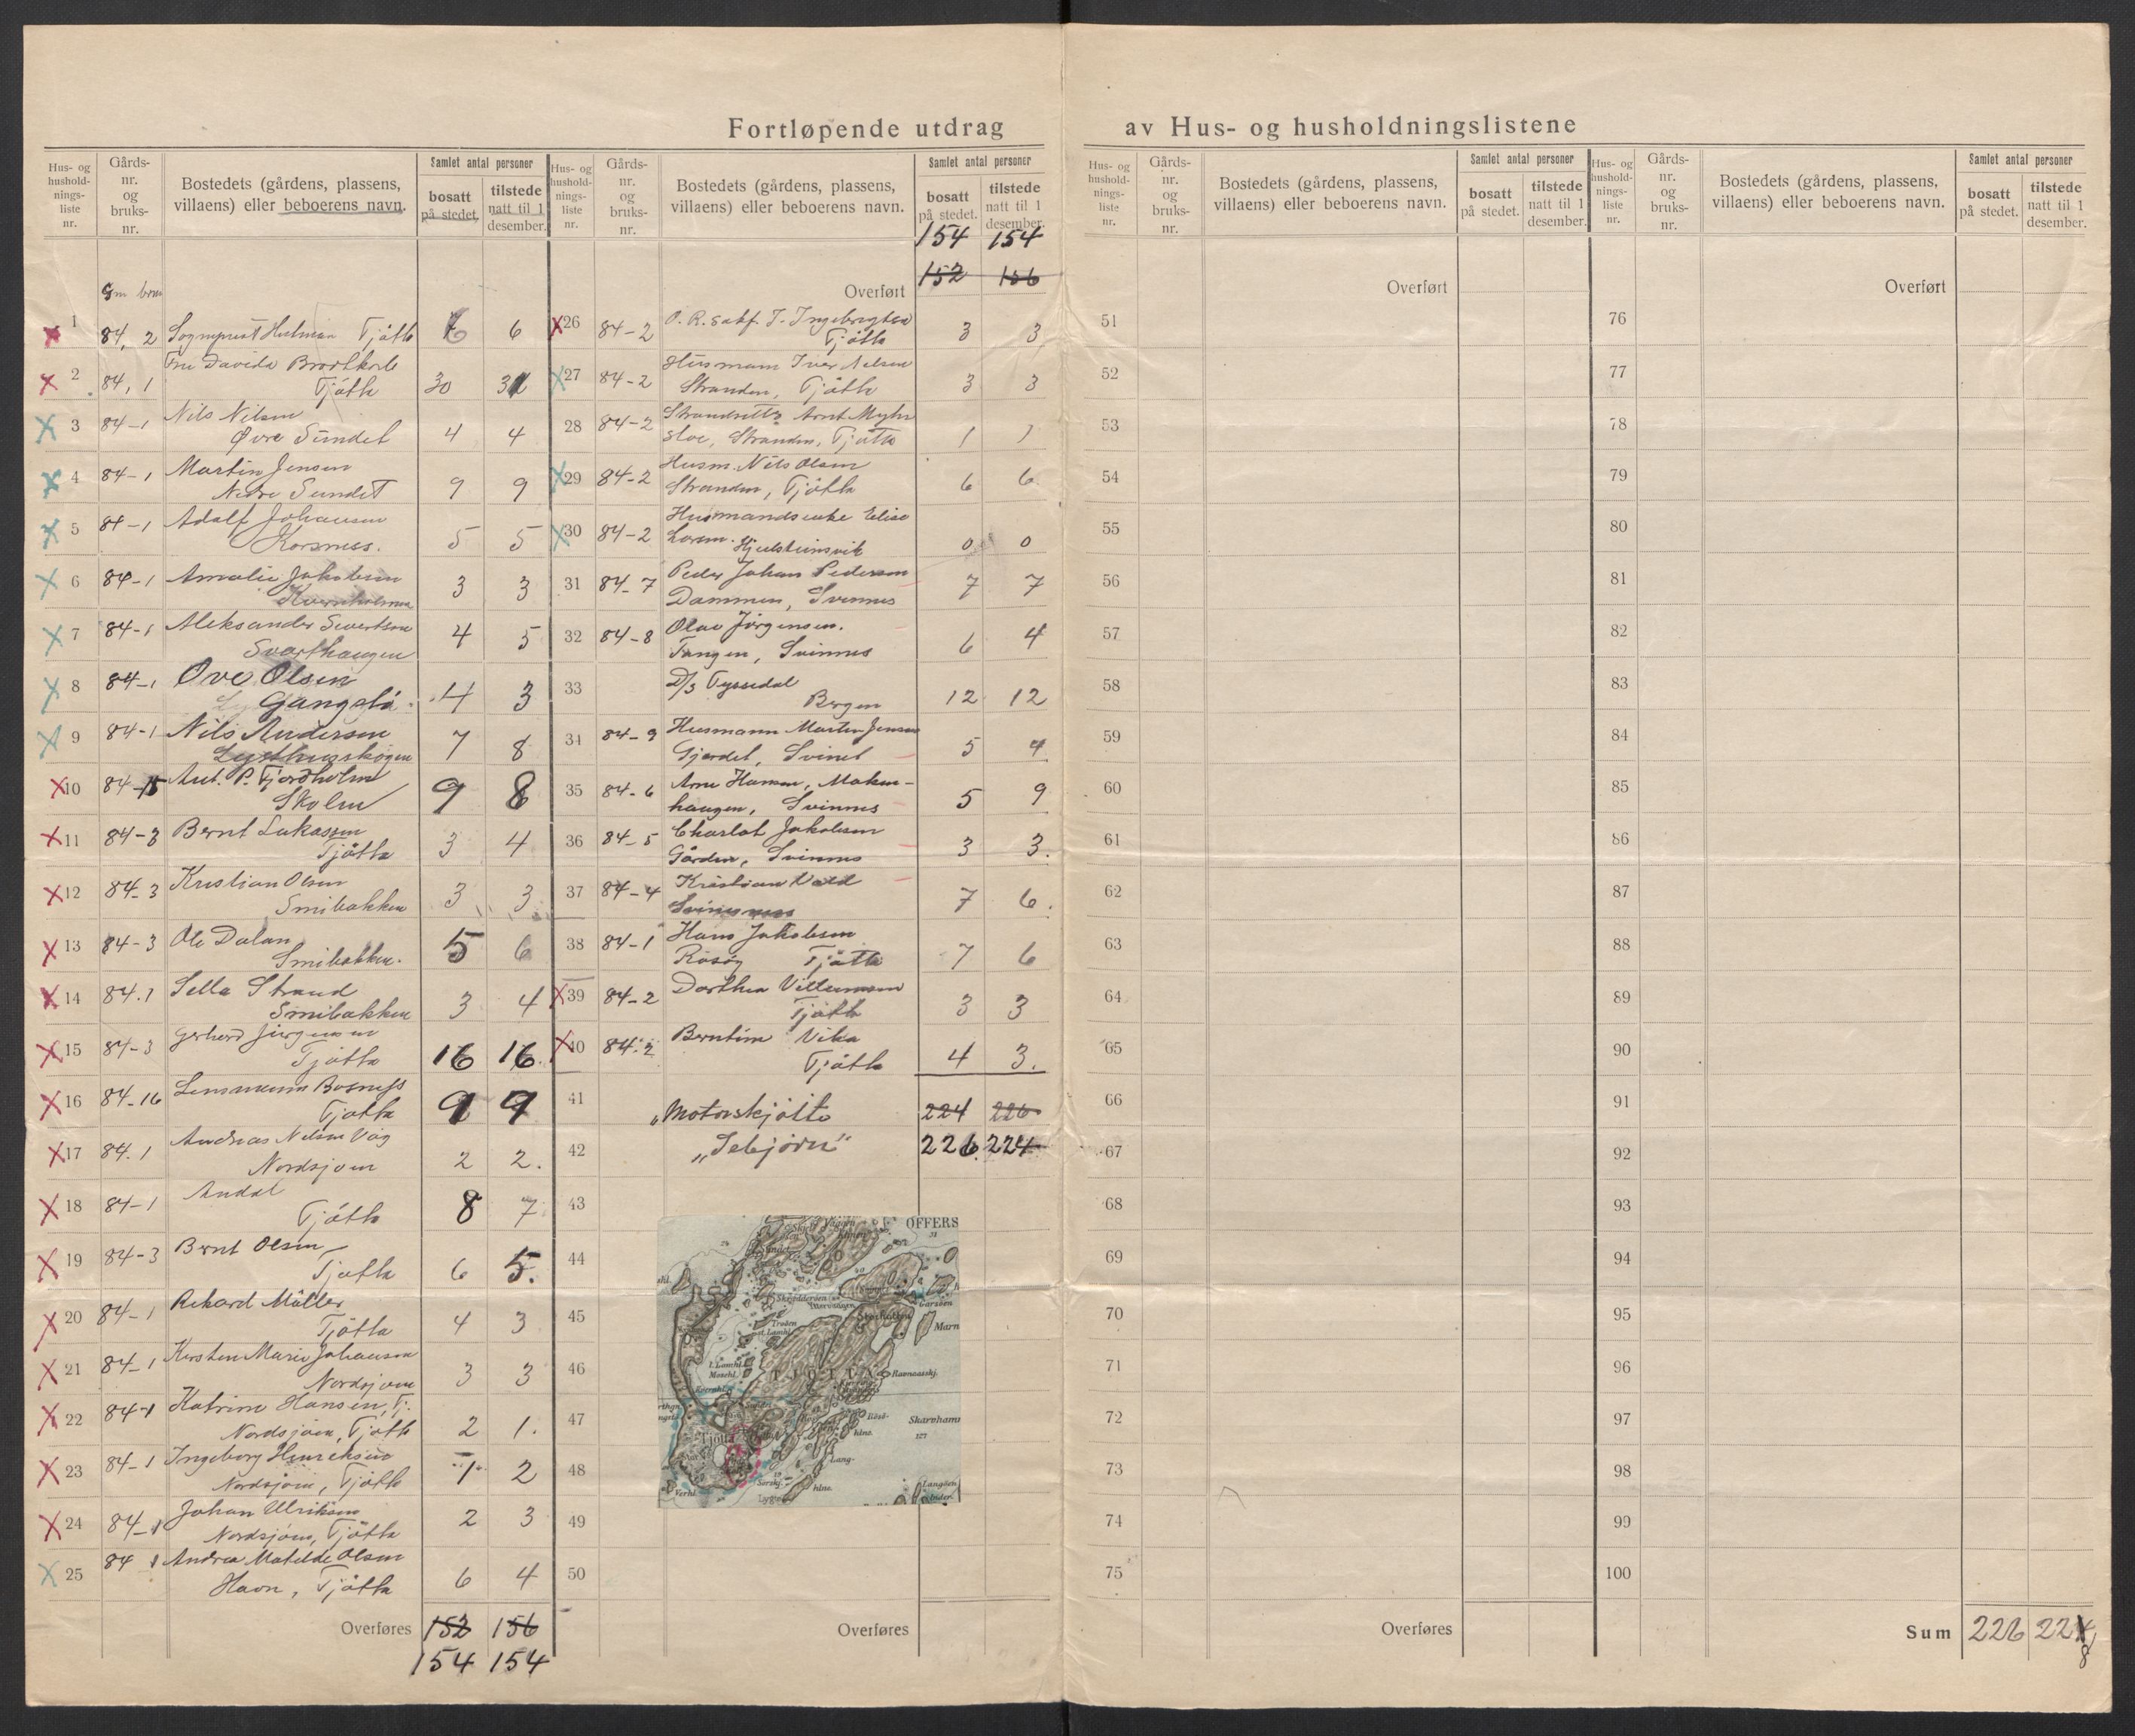 Fortløpende utdrag av Hus- og husholdningslistene
Hus- og hushold-nings-liste nr.
Gårds-nr. og bruks-nr.
Bostedets (gårdens, plassens, villaens) eller beboerens navn.
Samlet antal personer
bosatt på stedet.
tilstede natt til 1 desember.
Hus- og hushold-nings-liste nr.
Gårds-nr. og bruks-nr.
Bostedets (gårdens, plassens, villaens) eller beboerens navn.
Samlet antal personer
bosatt på stedet.
tilstede natt til 1 desember.
Hus- og hushold-nings-liste nr.
Gårds-nr. og bruks-nr.
Bostedets (gårdens, plassens, villaens) eller beboerens navn.
Samlet antal personer
bosatt på stedet.
tilstede natt til 1 desember.
Hus- og hushold-nings-liste nr.
Gårds-nr. og bruks-nr.
Bostedets (gårdens, plassens, villaens) eller beboerens navn.
Samlet antal personer
bosatt på stedet.
tilstede natt til 1 desember.
1 84, 2 Sogneprest Tjøtta 6 6
2 84, 1 Fru Davida Brodtkorb
Tjøtta 30 31
3 84-1 Nils Nilsen
Øvre Sundet 4 4
4 84-1 Martin Jensen
Nedre Sundet 9 9
5 84-1 Adolf Johansen
Korsness. 5 5
6 84-1 Amalie Jakobsen
3 3
7 84-1 Aleksander Sivertsen
Svarthaugen 4 5
8 84-1 Ove Olsen
4 3
9 84-1 Nils Andersen
7 8
10 84-15 Ant. P. Fjordholm
9 8
11 84-3 Bernt Lukassen
Tjøtta 3 4
12 84-3 Kristian Olsen
Smibakken 3 3
13 84-3 Ole Dalan
Smibakken. 5 6
14 84.1 Sella Strand
Smibakken 3 4
15 84-3 Gerhard Jørgensen
Tjøtta 16 16.
16 84-16 Lensmann Bosness
Tjøtta 9 9
17 84.1 Andreas Nilsen Våg
Nordsjøen 2 2.
18 84-1 Andal
Tjøtta 8 7
19 84-3 Bernt Olsen
Tjøtta 6 5.
20 84-1 Rikard Müller
Tjøtta 4 3
21 84-1 Kirsten Marie Johansen
Nordsjøen 3 3
22 84-1 Katrine Hansen,
Nordsjøen, Tjøtta 2 1.
23 84-1 Ingeborg Henriksen
Nordsjøen, Tjøtta 1 2
24 84-1 Johan Ulriksen
Nordsjøen, Tjøtta 2 3
25 84 1 Andrea Matilde Olsen
Havn, Tjøtta 6 4
Overføres 152 156
154 154
154 154
Overført 152 156
26 84-2 O. R. J. Ingebrigtsen
Tjøtta 3 3
27 84-2 Husmann Iver Nilsen
Stranden, Tjøtta 3 3
28 84-2 Arnt
Stranden, Tjøtta 1 1
29 84-2 Husm. Nils Olsen
Stranden, Tjøtta 6 6
30 84-2 Husmandsenke Elise
Hjelsteinsvik 0 0
31 84-7 Peder Johan Pedersen
Dammen, Svinnes 7 7
32 84-8 Olav Jørgensen.
Tangen, Svinnes 6 4
33 D/S Tyssedal
Bergen 12 12
34 84-9 Husmann Martin Jensen
Gjerdet, Svines 5 4
35 84-6 Arne Hansen,
haugen, Svinnes 5 9
36 84-5 Charlot Jakobsen
Gården, Svinnes 3 3.
37 84-4 Kristian
Svinesness 7 6.
38 84-1 Hans Jakobsen
Rosøy Tjøtta 7 6
39 84-2 Dorthea Villumsen
Tjøtta 3 3
40 84-2 Berntine Vika
Tjøtta 4 3.
41 "Motorskjøite 224 226
42 "Isbjørn" 226 224
43
44
45
46
47
48
49
50
OFFERS
TJOTTA
Tjotta
Skarvhams
Rosö-
Lang-
Langöen
Overføres
Overført
51
52
53
54
55
56
57
58
59
60
61
62
63
64
65
66
67
68
69
70
71
72
73
74
75
Overføres
Overført
76
77
78
79
80
81
82
83
84
85
86
87
88
89
90
91
92
93
94
95
96
97
98
99
100
Sum 226 228